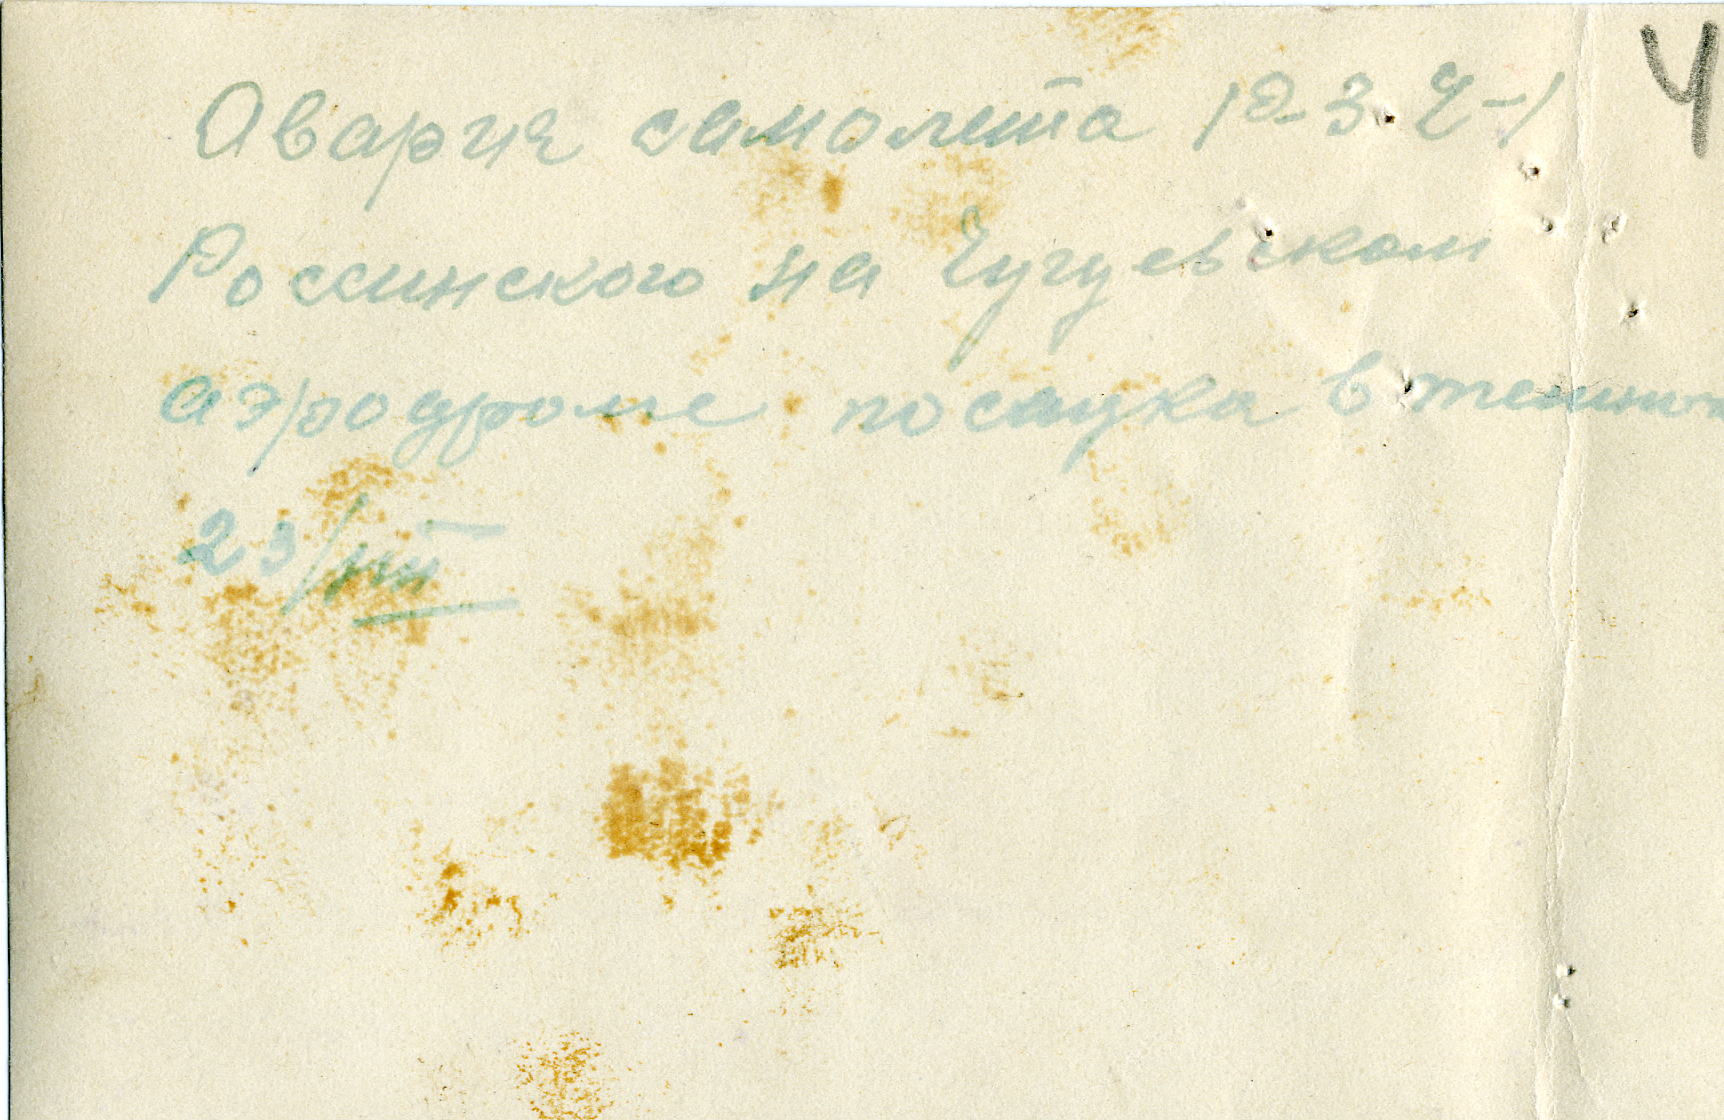 4
Авария самолета Р-З. Ч-1
Россинского на Чугуевском
аэродроме посадка в темно
23/VIII